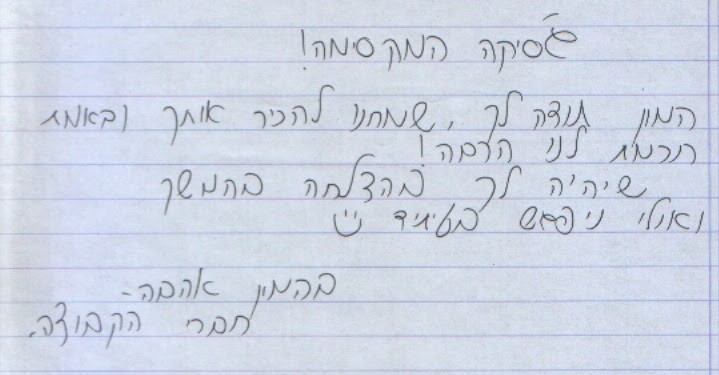 ג׳סיקה המקסימה!
המון תודה לך, שמחנו להכיר אותך ובאמת
תרמת לנו הרבה!
שיהיה לך בהצלחה בהמשך
ואולי ניפגש בעתיד
בהמון אהבה-
חברי הקבוצה.